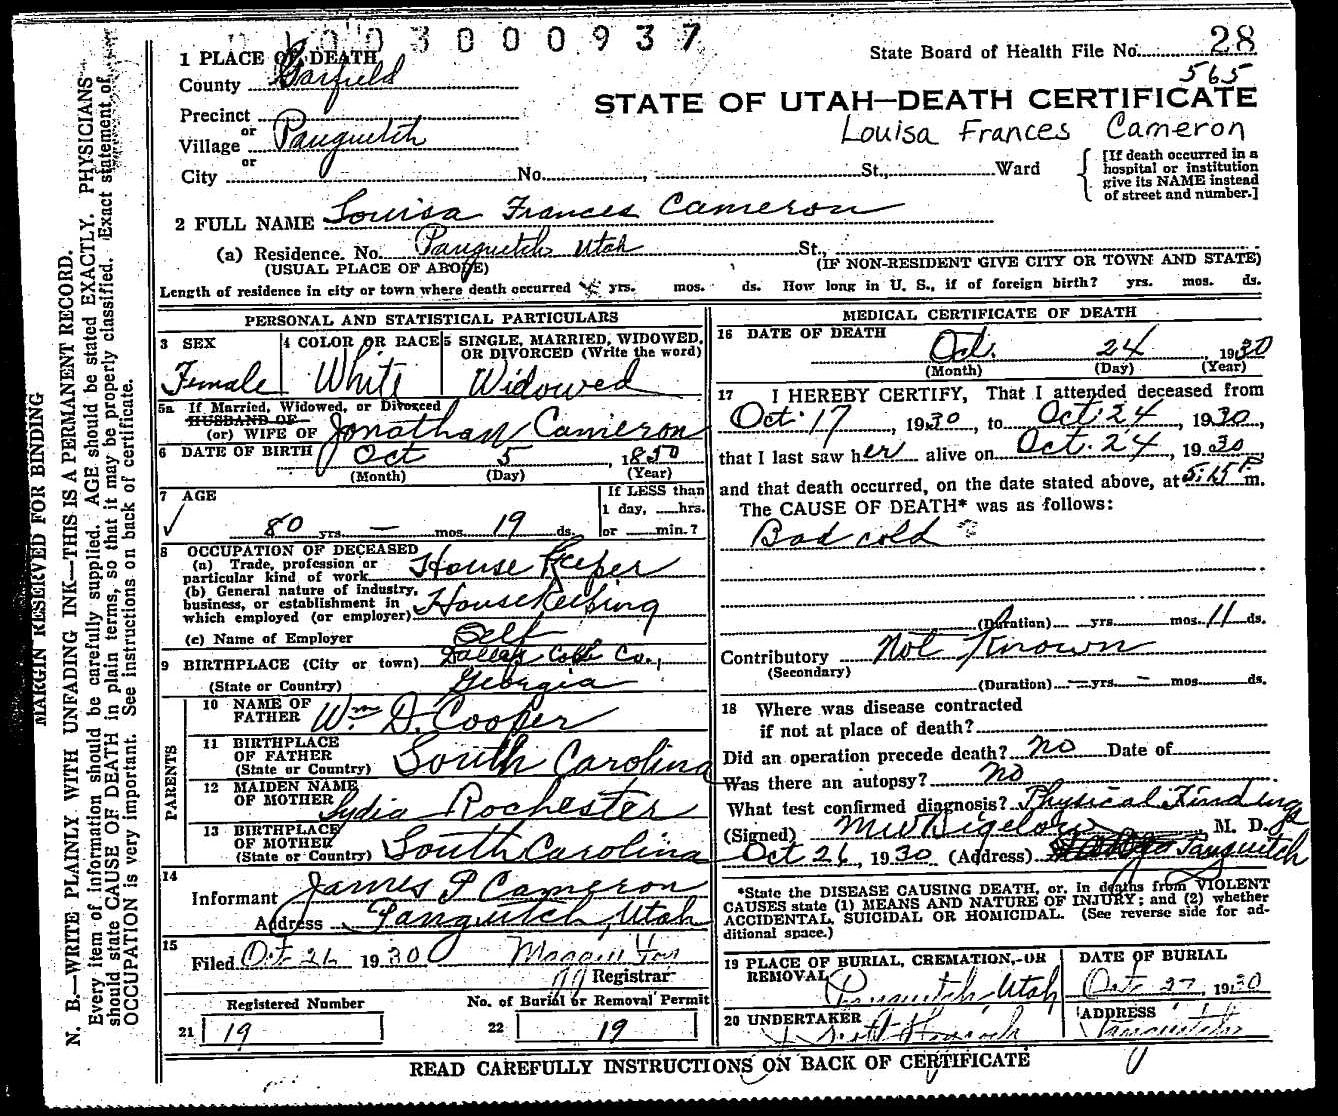 0 3 0 0 0 9 3 7
State Board of Health File No. 28
565
STATE OF UTAH—DEATH CERTIFICATE
Louisa Frances Cameron
1 PLACE OF DEATH
County Garfield
Precinct
or
Village Panguitch
or
City No. , St., Ward
[If death occurred in a
hospital or institution
give its NAME instead
of street and number.]
2 FULL NAME Louisa Frances Cameron
(a) Residence. No. Panguitch Utah St.,
(USUAL PLACE OF ABODE) (IF NON-RESIDENT GIVE CITY OR TOWN AND STATE)
Length of residence in city or town where death occurred yrs. mos. ds. How long in U. S., if of foreign birth? yrs. mos. ds.
PERSONAL AND STATISTICAL PARTICULARS
3 SEX
Female
4 COLOR OR RACE
White
5 SINGLE, MARRIED, WIDOWED,
OR DIVORCED (Write the word)
Widowed
5a If Married, Widowed, or Divorced
HUSBAND OF
(or) WIFE OF Jonathan Cameron
6 DATE OF BIRTH Oct 5, 1850
(Month) (Day) (Year)
7 AGE
80 yrs. — mos. 19 ds.
If LESS than
1 day, hrs.
or min.?
8 OCCUPATION OF DECEASED
(a) Trade, profession or
particular kind of work House Keeper
(b) General nature of industry,
business, or establishment in
which employed (or employer) Housekeeping
(c) Name of Employer Self
9 BIRTHPLACE (City or town) Dallas Cobb Co.,
(State or Country) Georgia
PARENTS
10 NAME OF
FATHER Wm D. Cooper
11 BIRTHPLACE
OF FATHER
(State or Country) South Carolina
12 MAIDEN NAME
OF MOTHER Lydia Rochester
13 BIRTHPLACE
OF MOTHER
(State or Country) South Carolina
14
Informant James P Cameron
Address Panguitch, Utah
15
Filed Oct 26 1930
Registrar
Registered Number
21 19
No. of Burial or Removal Permit
22 19
MEDICAL CERTIFICATE OF DEATH
16 DATE OF DEATH
Oct. 24, 1930
(Month) (Day) (Year)
17 I HEREBY CERTIFY, That I attended deceased from
Oct. 17, 1930, to Oct. 24, 1930,
that I last saw her alive on Oct. 24, 1930,
and that death occurred, on the date stated above, at 5:15 P m.
The CAUSE OF DEATH* was as follows:
Bad cold
(Duration) yrs. mos. 11 ds.
Contributory Not Known
(Secondary)
(Duration) — yrs. — mos. ds.
18 Where was disease contracted
if not at place of death?
Did an operation precede death? no Date of
Was there an autopsy? no
What test confirmed diagnosis? Physical Findings
(Signed) M W Bigelow, M. D.
Oct 26, 1930 (Address) Panguitch
*State the DISEASE CAUSING DEATH, or, in deaths from VIOLENT
CAUSES state (1) MEANS AND NATURE OF INJURY; and (2) whether
ACCIDENTAL, SUICIDAL OR HOMICIDAL. (See reverse side for ad-
ditional space.)
19 PLACE OF BURIAL, CREMATION, OR
REMOVAL Panguitch Utah
DATE OF BURIAL
Oct. 27, 1930
20 UNDERTAKER
ADDRESS
Panguitch
READ CAREFULLY INSTRUCTIONS ON BACK OF CERTIFICATE
MARGIN RESERVED FOR BINDING
N. B.—WRITE PLAINLY, WITH UNFADING INK—THIS IS A PERMANENT RECORD.
Every item of information should be carefully supplied. AGE should be stated EXACTLY. PHYSICIANS
should state CAUSE OF DEATH in plain terms, so that it may be properly classified. Exact statement of
OCCUPATION is very important. See instructions on back of certificate.